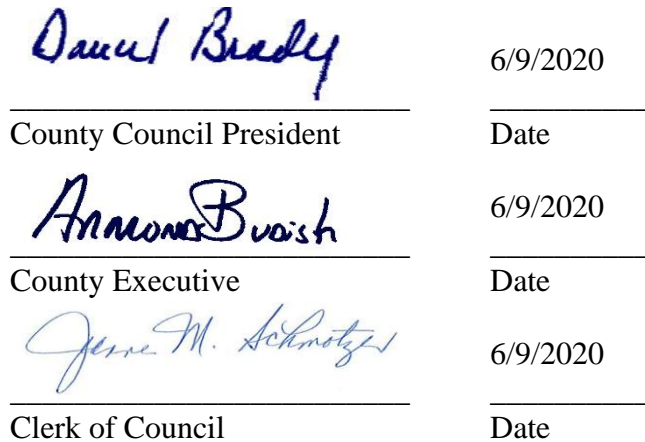 Daniel Brady 6/9/2020
County Council President Date
Armond Budish 6/9/2020
County Executive Date
Jeanne M. Schmotzer 6/9/2020
Clerk of Council Date